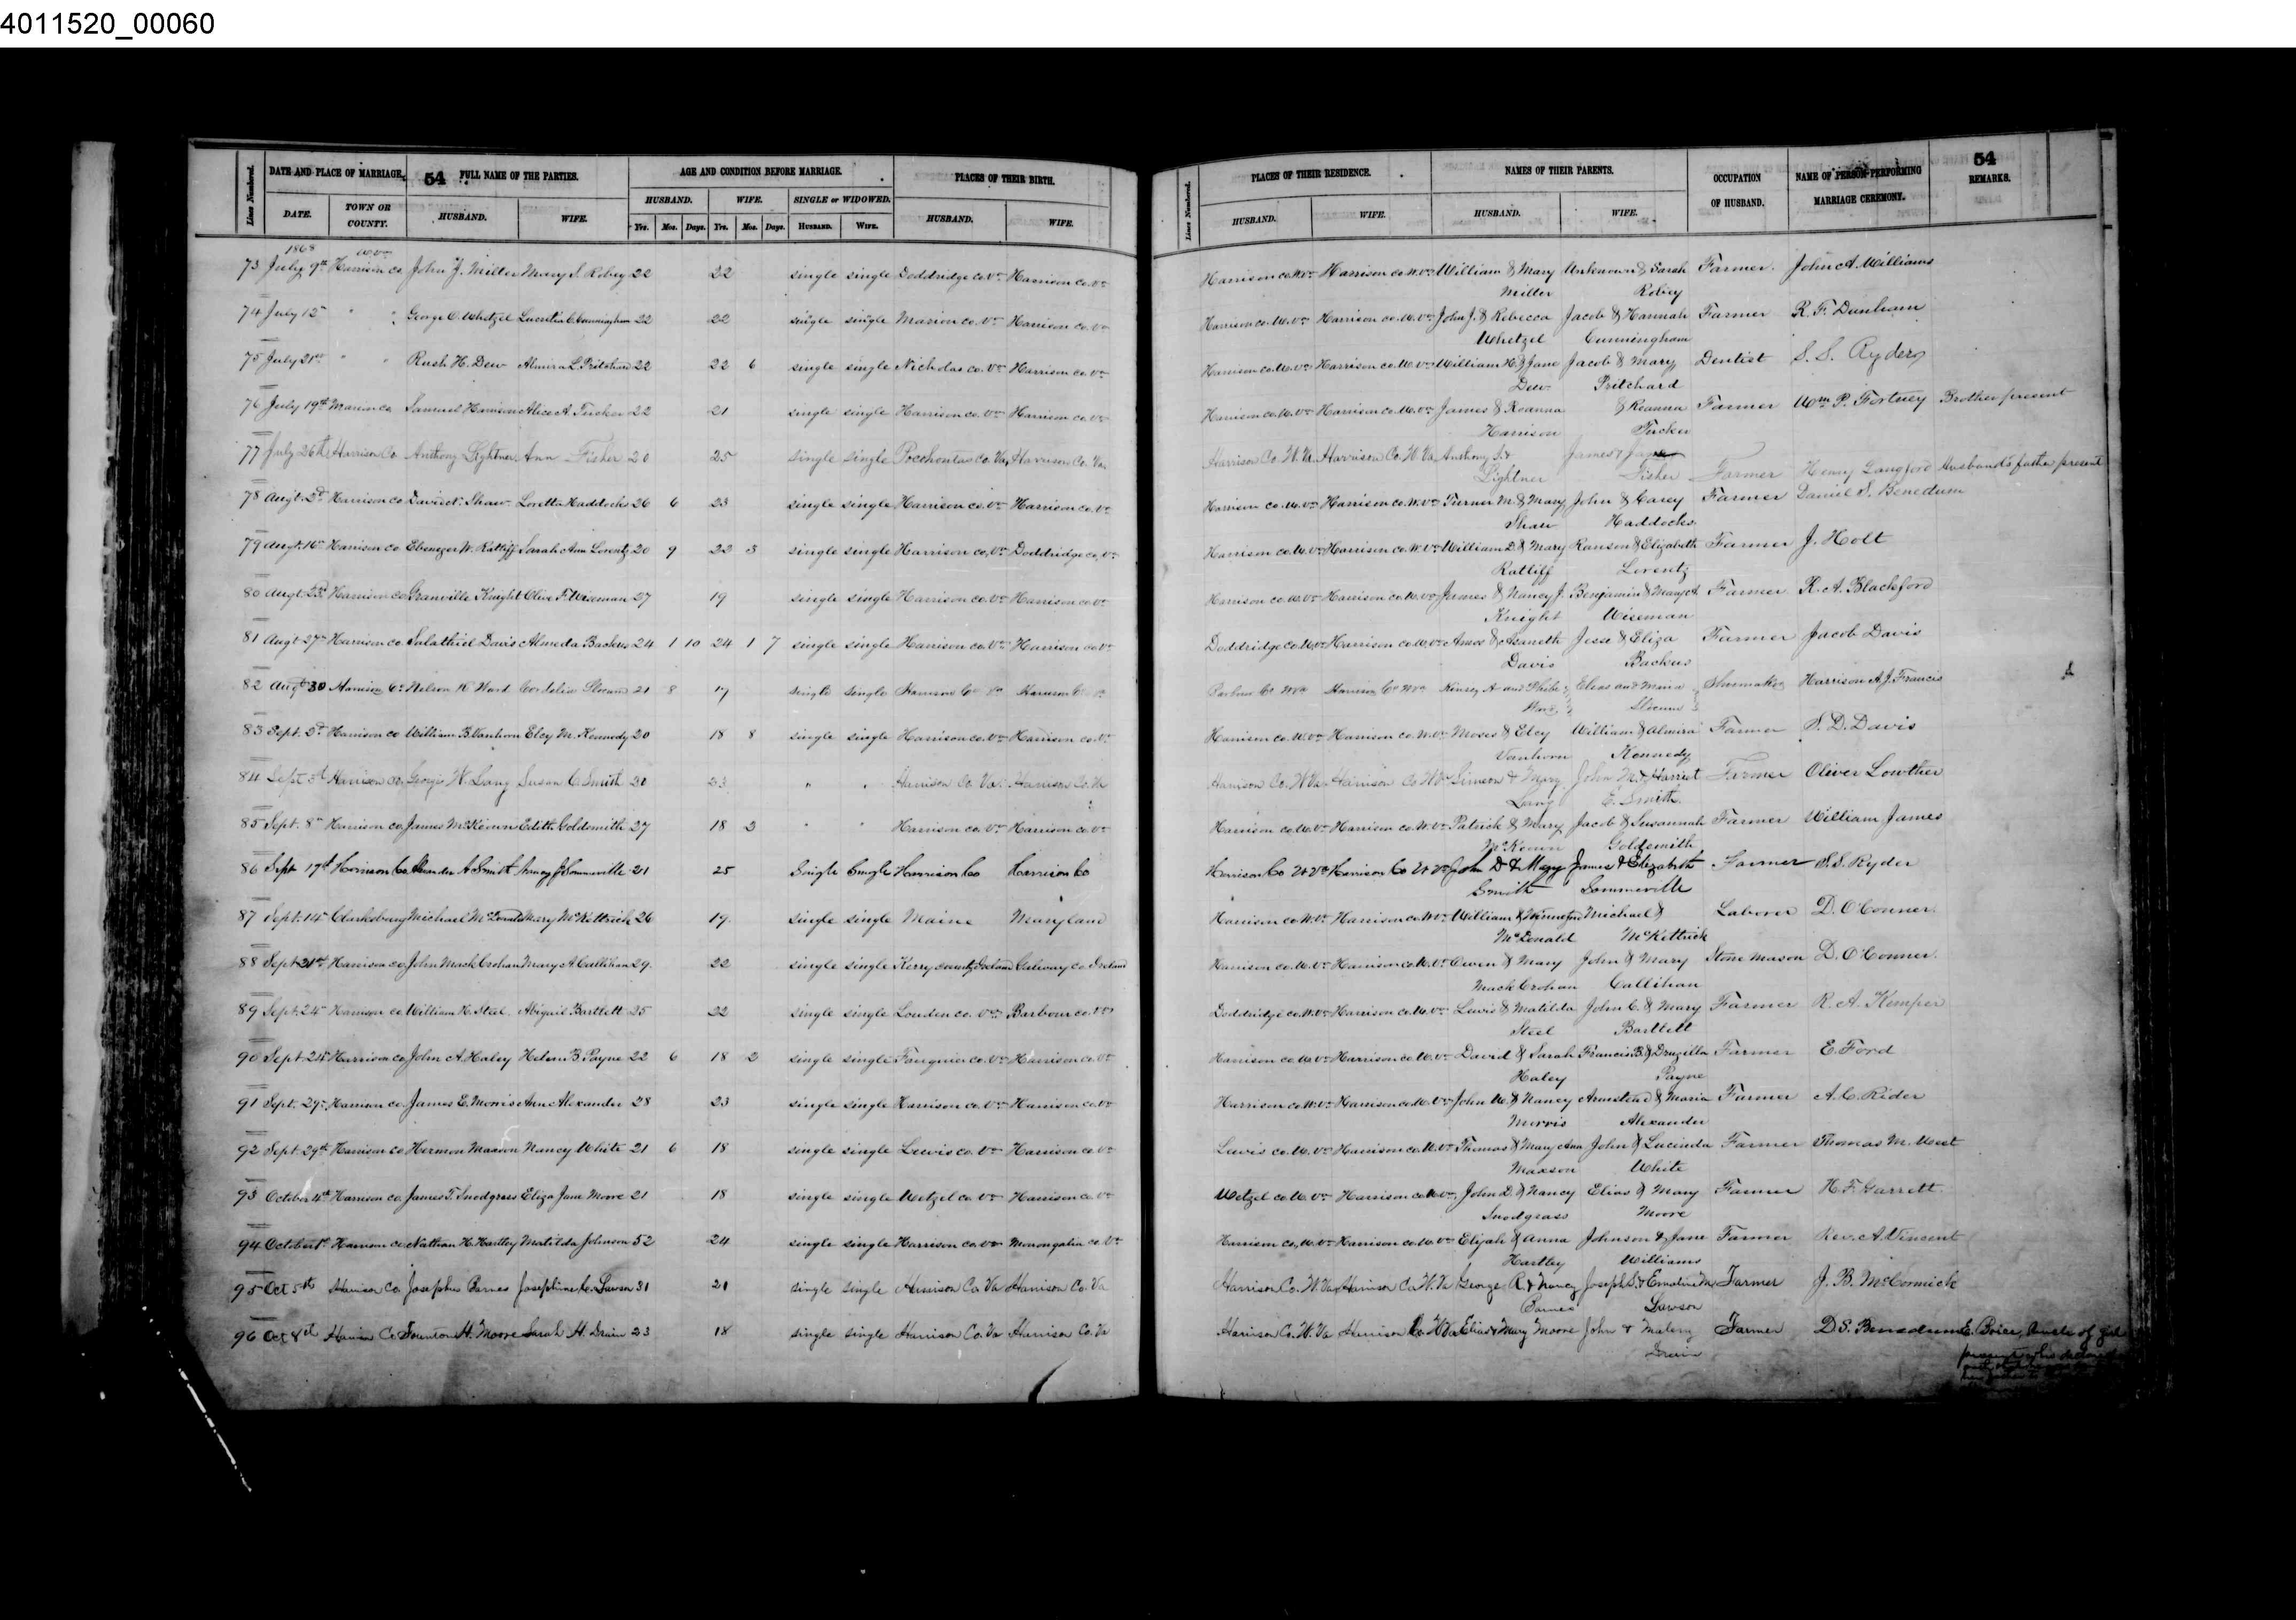 4011520_00060
Lines Numbered. DATE AND PLACE OF MARRIAGE. 54 FULL NAME OF THE PARTIES. AGE AND CONDITION BEFORE MARRIAGE. PLACES OF THEIR BIRTH.
DATE. TOWN OR COUNTY. HUSBAND. WIFE. HUSBAND. WIFE. SINGLE or WIDOWED. HUSBAND. WIFE.
Yrs. Mos. Days. Yrs. Mos. Days. HUSBAND. WIFE.
1868 W.Va
73 July 9th Harrison co John J. Miller Mary S. Robey 22 22 single single Doddridge co. Va Harrison co. Va
74 July 12 " " George C. Whetzel Lucretia C. Cunningham 22 22 single single Marion co. Va Harrison co. Va
75 July 21st " " Rush H. Dew Almira L. Pritchard 22 22 6 single single Nicholas co. Va Harrison co. Va
76 July 19th Marion co Samuel Harrison Alice A. Tucker 22 21 single single Harrison co. Va Harrison co. Va
77 July 26th Harrison Co Anthony Lightner Ann Fisher 20 25 single single Pocohontas Co. Va Harrison Co. Va
78 Augt. 2d Harrison co David Shaw Loretta Haddocks 26 6 23 single single Harrison co. Va Harrison co. Va
79 Augt. 16 Harrison co Ebenezer W. Ratliff Sarah Ann Lorentz 20 9 22 3 single single Harrison co. Va Doddridge co. Va
80 Augt 23d Harrison co Granville Knight Olive F. Wiseman 27 19 single single Harrison co. Va Harrison co. Va
81 Augt 27 Harrison co Salathiel Davis Almeda Backus 24 1 10 24 1 7 single single Harrison co. Va Harrison co. Va
82 Augt 30 Harrison Co Nelson Ward Cordelia Slocum 21 8 17 single single Harrison Co Va Harrison Co Va
83 Sept. 2d Harrison co William B. Vanhorn Elcy M. Kennedy 20 18 8 single single Harrison co. Va Harrison co. Va
84 Sept 3d Harrison co. George W. Lang Susan C. Smith 20 23 " " Harrison Co. Va. Harrison Co. Va
85 Sept. 8 Harrison co. James McKeown Edith Goldsmith 27 18 2 " " Harrison co. Va Harrison co. Va
86 Sept 17th Harrison Co A Smith Nancy J Sommerville 21 25 Single Single Harrison Co Harrison Co
87 Sept. 14 Clarksburg Michael McDonald Mary McKettrick 26 19 single single Maine Maryland
88 Sept 21st Harrison co John MackCrohan Mary A. Callihan 29 22 single single Kerry county Ireland Galway co. Ireland
89 Sept. 24 Harrison co William H. Steel Abigail Bartlett 25 22 single single Louden co. Va Barbour co. Va
90 Sept. 24 Harrison co John A. Haley Helen B. Payne 22 6 18 2 single single Fauquier co. Va Harrison co. Va
91 Sept. 29 Harrison co. James E. Morris Ann Alexander 28 23 single single Harrison co. Va Harrison co. Va
92 Sept. 29th Harrison co Hermon Maxson Nancy White 21 6 18 single single Lewis co. Va Harrison co. Va
93 October 4th Harrison co. James T. Snodgrass Eliza Jane Moore 21 18 single single Wetzel co. Va Harrison co. Va
94 October 1st Harrison co. Nathan H. Hartley Matilda Johnson 52 24 single single Harrison co. Va Monongalia co. Va
95 Oct 5th Harrison Co. Josephus Barnes Josephine C. Lawson 31 21 single single Harrison Co. Va Harrison Co. Va
96 Oct 8th Harrison Co. H. Moore Sarah H. Drain 23 18 single single Harrison Co. Va Harrison Co. Va
Lines Numbered. PLACES OF THEIR RESIDENCE. NAMES OF THEIR PARENTS. OCCUPATION OF HUSBAND. NAME OF PERSON PERFORMING MARRIAGE CEREMONY. 54 REMARKS.
HUSBAND. WIFE. HUSBAND. WIFE.
Harrison co. W. Va Harrison co. W. Va William & Mary Unknown & Sarah Farmer. John A. Williams
Miller Robey
Harrison co. W. Va Harrison co. W. Va John J. & Rebecca Jacob & Hannah Farmer R. F. Dunham
Whetzel Cunningham
Harrison co. W. Va Harrison co. W. Va William H. & Jane Jacob & Mary Dentist S. S. Ryder
Dew Pritchard
Harrison co. W. Va Harrison co. W. Va James & Roanna & Roanna Farmer Wm P. Fortney Brother present
Harrison Tucker
Harrison Co. W. Va. Harrison Co. W. Va Anthony S. & James & Jane Farmer Henry Langford Husband's father present
Lightner Fisher
Harrison co. W. Va Harrison co. W. Va Turner M. & Mary John & Carey Farmer Daniel S. Benedum
Shaw Haddocks
Harrison co. W. Va Harrison co. W. Va William D. & Mary Ranson & Elizabeth Farmer J. Holt
Ratliff Lorentz
Harrison co. W. Va Harrison co. W. Va James & Nancy J. Benjamin & Mary A. Farmer K. A. Blackford
Knight Wiseman
Doddridge co. W. Va Harrison co. W. Va Amos & Asaneth Jesse & Eliza Farmer Jacob Davis
Davis Backus
Barbour Co WVa Harrison Co WVa Kinsey A and Phebe Elias and Maria Shoemaker Harrison A. J. Francis
Ward Slocum
Harrison co. W. Va Harrison co. W. Va Moses & Elcy William & Almira Farmer S. D. Davis
Vanhorn Kennedy
Harrison Co. W. Va Harrison Co W. Va Simeon & Mary John M. & Harriet Farmer Oliver Lowther
Lang E. Smith.
Harrison co. W. Va Harrison co. W. Va Patrick & Mary Jacob & Susannah Farmer William James
McKeown Goldsmith
Harrison Co W Va Harrison Co W Va John D & Mary James & Elizabeth Farmer S. S. Ryder
Smith Sommerville
Harrison co. W. Va Harrison co. W. Va William & Michael & Laborer D. O'Conner.
McDonald McKettrick
Harrison co. W. Va Harrison co. W. Va Owen & Mary John & Mary Stone Mason D. O'Conner.
MackCrohan Callihan
Doddridge co. W. Va Harrison co. W. Va Lewis & Matilda John C. & Mary Farmer R. A. Kemper
Steel Bartlett
Harrison co. W. Va Harrison co. W. Va David & Sarah Francis B. & Druzilla Farmer E. Ford
Haley Payne
Harrison co. W. Va Harrison co. W. Va John W. & Nancy Armstead & Maria Farmer A. C. Rider
Morris Alexander
Lewis co. W. Va Harrison co. W. Va Thomas & Mary Ann John & Lucinda Farmer Thomas M. West
Maxson White
Wetzel co. W. Va Harrison co. W. Va John D. & Nancy Elias & Mary Farmer H. F. Garrett
Snodgrass Moore
Harrison co. W. Va Harrison co. W. Va Elijah & Anna Johnson & Jane Farmer Rev. A. Vincent
Hartley Williams
Harrison Co. W. Va Harrison Co. W. Va George R. & Nancy Joseph S. & Emoline M. Farmer J. B. McCormick
Barnes Lawson
Harrison Co. W. Va Harrison Co. W. Va Elias & Mary Moore John & Farmer D S. Benedum E. Boice, Uncle of girl
Drain present who